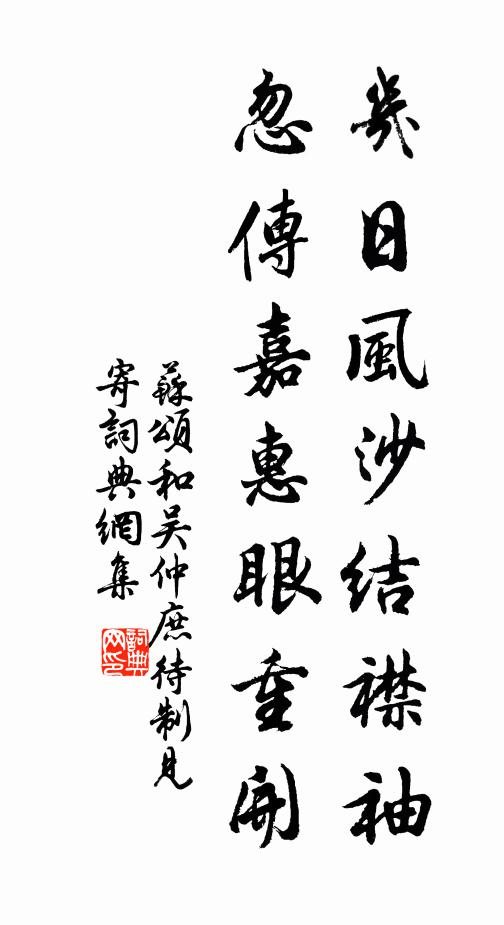 幾日風沙結襟袖
忽傳嘉惠眼重開
蘇頌和吴仲庶待制見
寄詞典網集
詞典网印